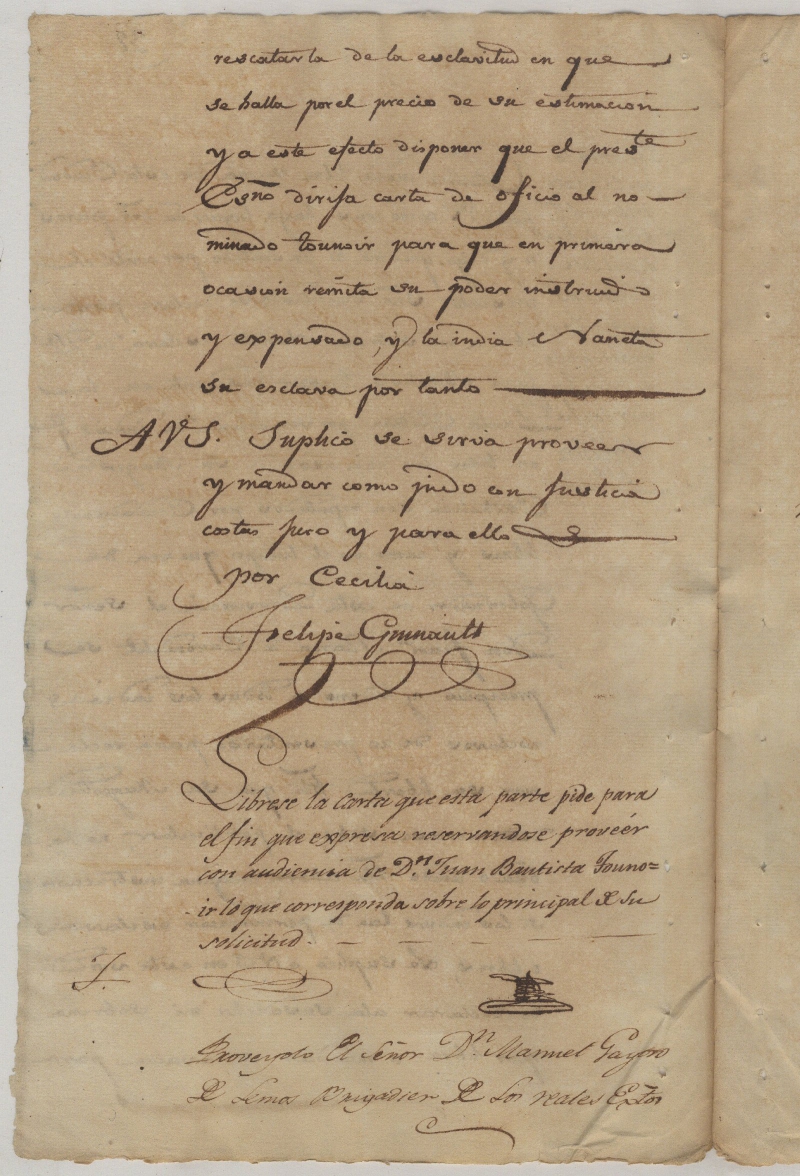 rescatarla de la esclavitud en que
se halla por el precio de su estimacion
y a este efecto disponer que el preste
Esño dirija carta de oficio al no—
minado tounoir para que en primera
ocasion remita su poder instruido
y expensado, y la india Naneta
su esclava por tanto
AVS. Suplico se sirva proveer
y mandar como pido con Justicia
costas juro y para ello
por Cecilia
Felipe Guinault
Librese la carta que esta parte pide para
el fin que expresa reservandose proveér
con audiencia de Dn. Juan Bautista Touno=
ir lo que corresponda sobre lo principal de su
solicitud.
Proveyolo El Señor Dn. Manuel Gayoso
De Lemos Brigadier De Los reales Extos